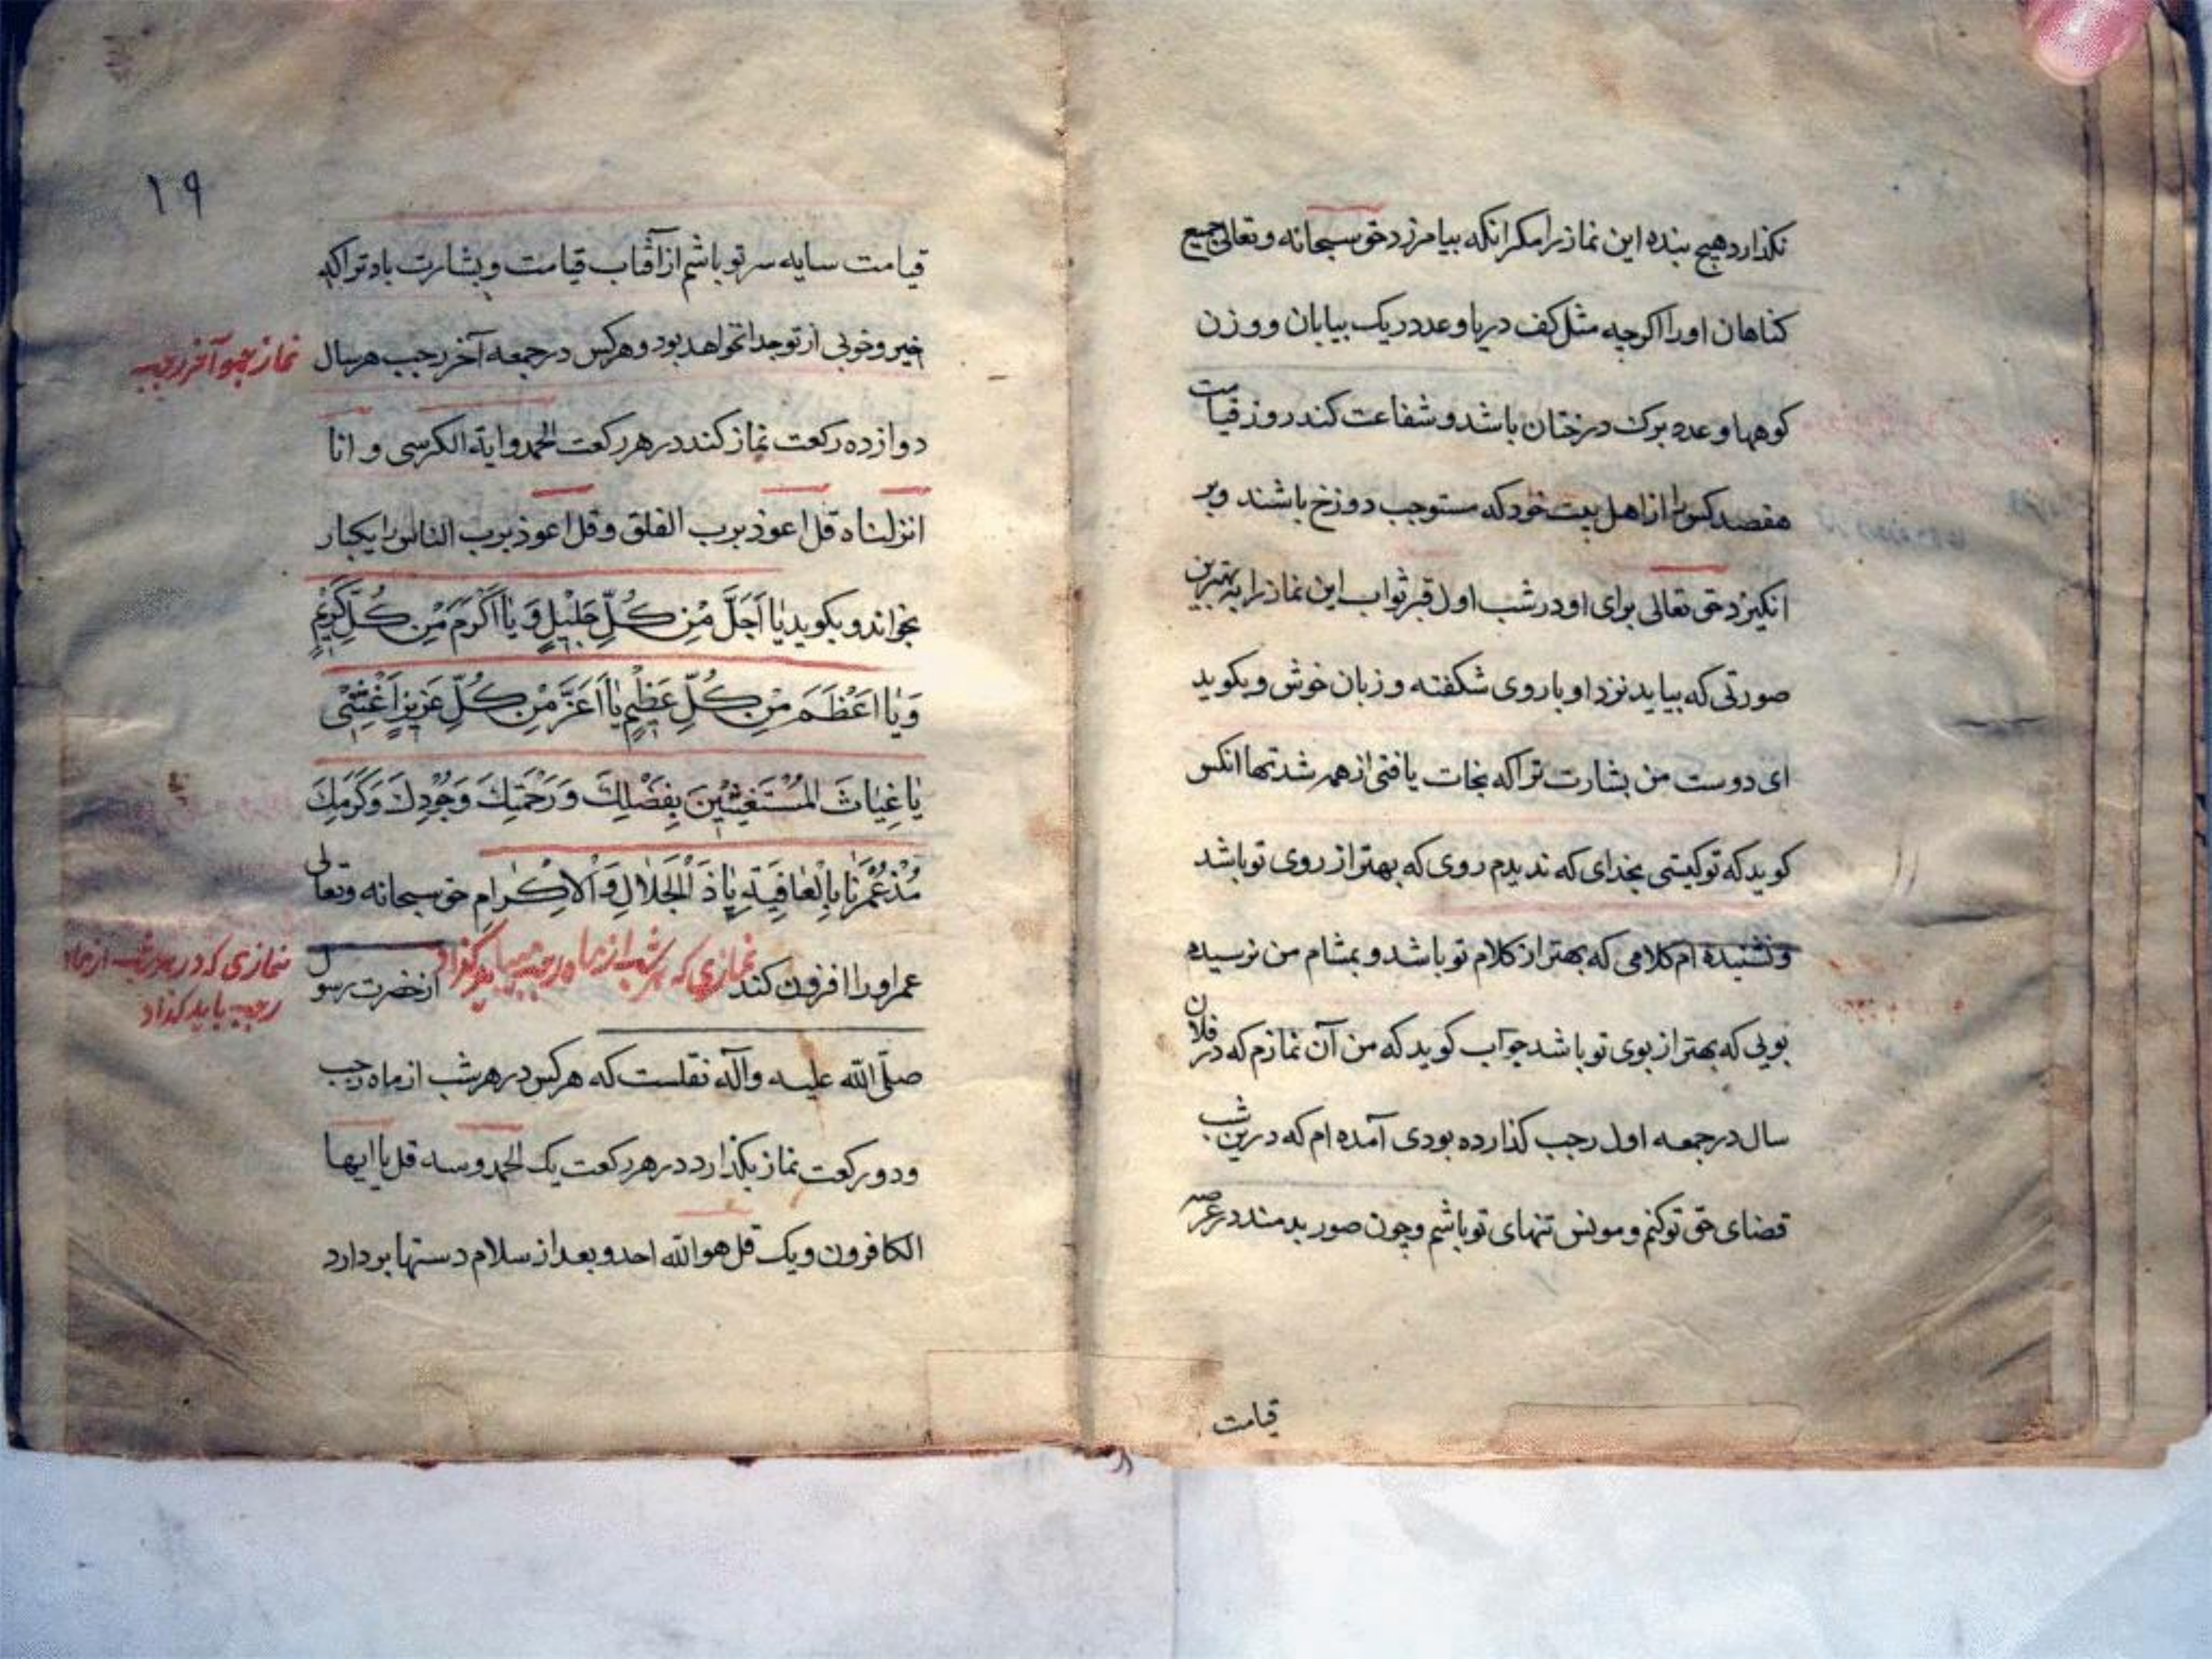 نکذارد هیچ بنده این نماز را مکر انکه بیامرزد حق سبحانه و تعالی جمیع
کناهان او را اکرچه مثل کف دریا و عدد ریک بیابان و وزن
کوهها و عدد برک درختان باشد و شفاعت کند روز قیامت
هفصد کس را از اهل بیت خود که مستوجب دوزخ باشند و بر
انکیزد حق تعالی برای او در شب اول قبر ثواب این نماز را به بهترین
صورتی که بیاید نزد او با روی شکفته و زبان خوش و بکوید
ای دوست من بشارت ترا که نجات یافتی از همه شدتها انکس
کوید که تو کیستی بخدای که ندیدم روی که بهتر از روی تو باشد
و نشنیده ام کلامی که بهتر از کلام تو باشد و بمشام من نرسیده
بویی که بهتر از بوی تو باشد جواب کوید که من آن نمازم که در فلان
سال در جمعه اول رجب کذارده بودی آمده ام که درین شب
قضای حق تو کنم و مونس تنهای تو باشم و چون صور بدمند در عرصه
قیامت
١٩
قیامت سایه سر تو باشم از آفتاب قیامت و بشارت باد ترا که
خیر و خوبی از تو جدا نخواهد بود و هر کس در جمعه آخر رجب هر سال
نماز جمعه آخر رجب
دوازده رکعت نماز کند در هر رکعت الحمد و ایة الکرسی و انا
انزلناه قل اعوذ برب الفلق و قل اعوذ برب الناس را یکبار
بخواند و بکوید یٰا اَجَلَّ مِْن کُلِّ جَلٖیلٍ وَ یٰا اَکْرَمَ مِنْ کُلِّ کَرٖیمٍ
وَ یٰا اَعْظَمَ مِنْ کُلِّ عَظٖیمٍ یٰا اَعَزَّ مِنْ کُلِّ عَزٖیزٍ اَغِثْنٖی
یٰا غِیٰاثَ الْمُسْتَغٖیثٖینَ بِفَضْلِكَ وَ رَحْمَتِكَ وَ جُوْدِكَ وَ کَرَمِكَ
مُدَّ عُمْرَنٰا بِالْعٰافِیَةِ یٰا ذَ الْجَلاٰلِ وَ الْاِکْرٰامِ حق سبحانه و تعالی
عمر او را افزون کند نمازی که هر شب از ماه رجب باید گذارد از حضرت رسول
نمازی که در هر شب از ماه
رجب باید کذارد
صلّی الله علیه و آله نقلست که هر کس در هر شب از ماه رجب
و دو رکعت نماز بکذارد در هر رکعت یک الحمد و سه قل یا ایها
الکافرون و یک قل هو الله احد و بعد از سلام دستها بر دارد